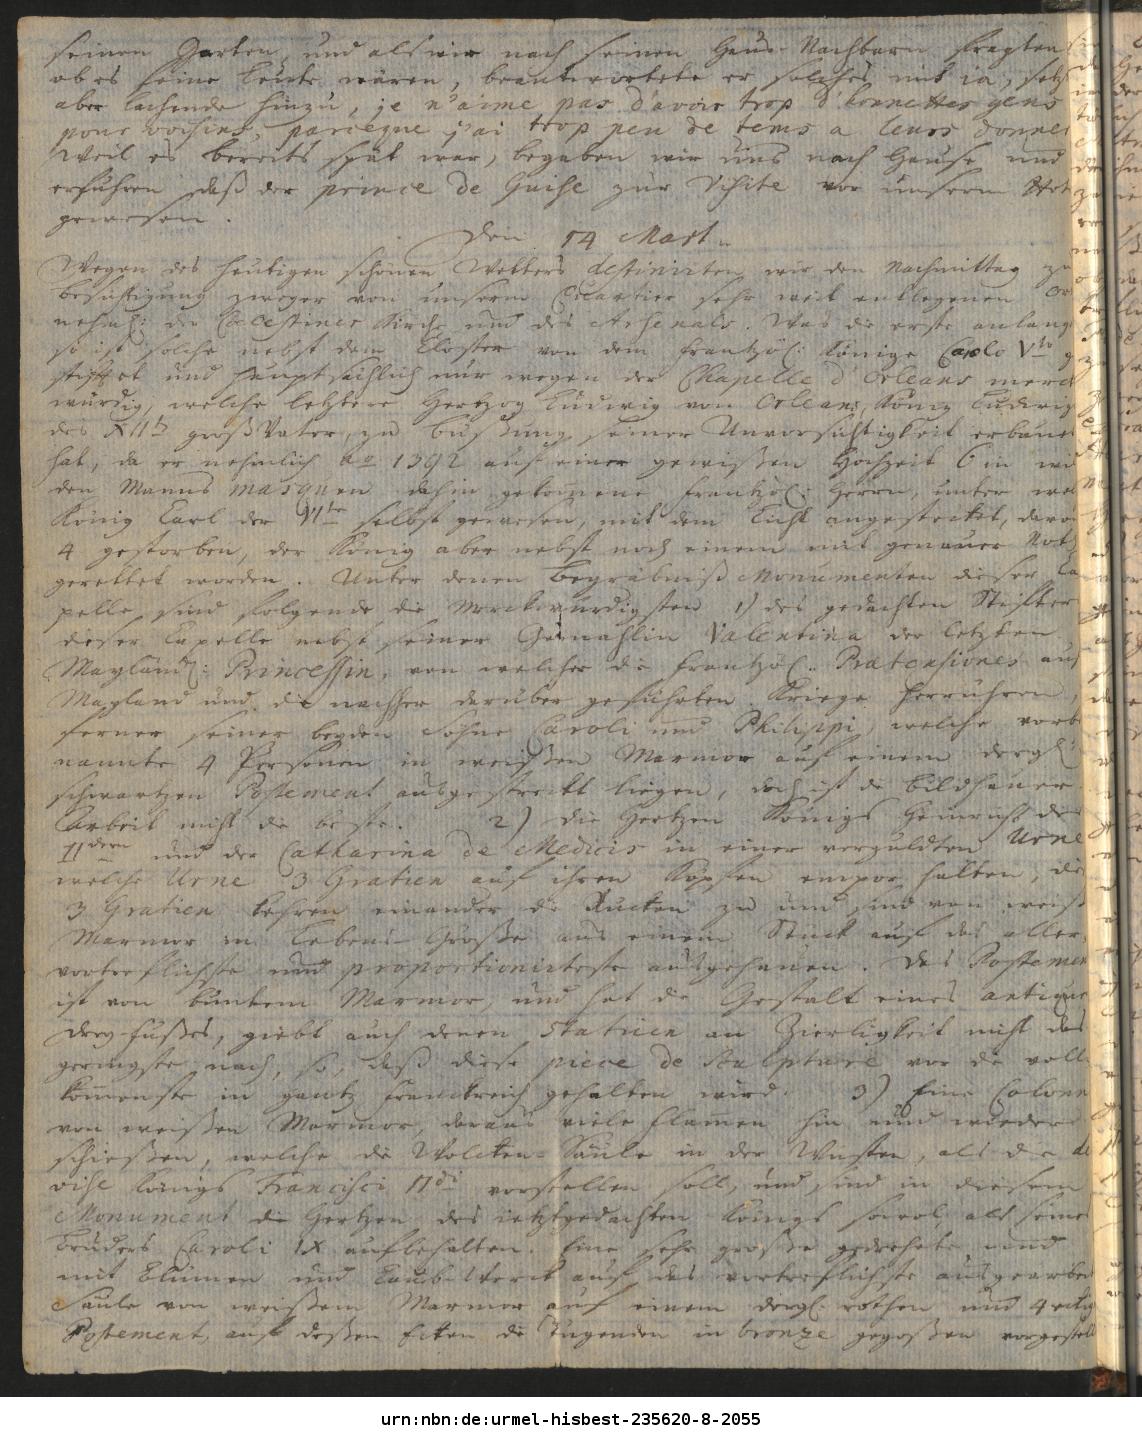 seinen Garten, und als wir nach seinen Haus-Nachbarn fragten
ob es feine Leute wären, beantwortete er solches mit ia, setzte
aber lachende hinzu, je n'aime pas d'avoir trop d'honnettes gens
pour voisins, parceque j'ai trop peu de tems a leurs donner
Weil es bereits spät war, begaben wir uns nach Hause und
erfuhren, daß der prince de Guise zur Visite vor unserm
gewesen.
Den 14 Mart.
Wegen des heutigen schönen Wetters destinirten wir den Nachmittag zu
besichtigung zweyer von unserm Quartier sehr weit entlegenen
nehml: der Coelestiner Kirche und des Arsenals. Was die erste anlangt
so ist solche nebst dem Closter von dem Frantzös: Könige Carolo Vto
stifftet und hauptsächlich nur wegen der Chapelle d'Orleans merck
würdig, welche letztere Hertzog Ludwig von Orleans, König Ludwig
des XIIten großVater, zu büßung seiner Unvorsichtigkeit erbauet
hat, da er nehmlich ao 1392 auf einer gewißen Hochzeit 6 in
den Manns masquen dahin gekom̄ene Frantzös: Herrn, unter wel
König Carl der VIte selbst gewesen, mit dem Licht angestecket, davon
4 gestorben, der König aber nebst noch einem mit genauer Noth
gerettet worden. Unter denen Begräbniß Monumenten dieser Ca
pelle, sind folgende die Merckwürdigsten 1) des gedachten Stifters
dieser Capelle nebst seiner Gemahlin Valentina der letzten
Mayländ: Princessin, von welcher die Frantzös: Prætensiones auf
Mayland und die nachher darüber geführten Kriege herrühren,
ferner seiner beyden Söhne Caroli und Philippi, welche vorbe
nannte 4 Personen in weißen Marmor auf einem dergl:
schwartzen Postement ausgestreckt liegen, doch ist die bildhauer
Arbeit nicht die beste. 2) Die Hertzen Königs Heinrichs des
IIdern und der Catharina de Medicis in einer verguldten Urne
welche Urne 3 Gratien auf ihren Köpfen empor halten, die
3 Gratien kehren einander die Rücken zu und sind von weiß
Marmor in Lebens-Größe aus einem Stück auf das aller
vortreflichste und proportionirteste ausgehauen. Das Postement
ist von buntem Marmor, und hat die Gestalt eines antiquen
Drey-fußes, giebt auch denen Statuen an Zierligkeit nicht das
geringste nach, so, daß diese piece de sculpture vor die voll
kom̄enste in gantz Franckreich gehalten wird. 3) Eine Colonne
von weißen Marmor, daraus viele flam̄en hin und wieder
schießen, welche die Wolcken-Säule in der Wüsten, als die de
vise Königs Francisci IIdi vorstellen soll, und sind in diesem
Monument die Hertzen des ietztgedachten Königs sowol, als seines
Bruders Caroli IX aufbehalten. Eine sehr große gedrehete und
mit Blumen und Laub-Werck auf das vortreflichste ausgearbei
Säule von weißem Marmor auf einem dergl: rothen und 4eckig
Postement, auf deßen Ecken die Tugenden in bronze gegoßen vorgestell
urn:nbn:de:urmel-hisbest-235620-8-2055